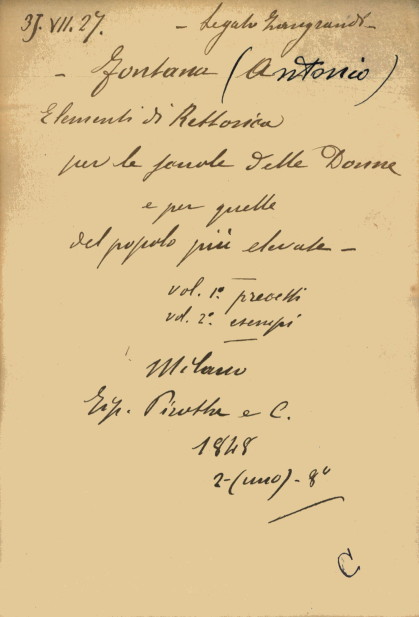 31.VII.27. - Legato Zangrandi -
- Fontana (Antonio)
Elementi di Rettorica
per le scuole delle Donne
e per quelle
del popolo più elevate -
vol. 1º. precetti
vol. 2º. esempi
Milano
Tip. Pirotta e C.
1848
2-(uno)- 8º
C